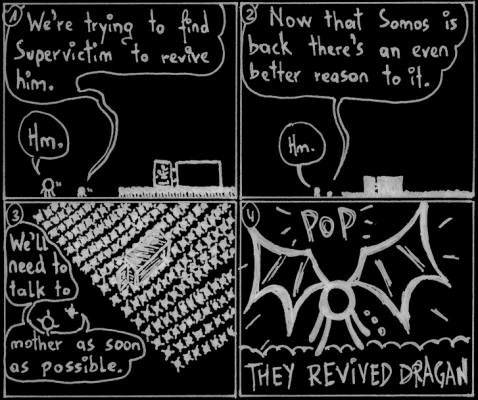 1
We're trying to find
Supervictim to revive
him.
Hm.
2
Now that Somos is
back there's an even
better reason to it.
Hm.
3
We'll
need to
talk to
mother as soon
as possible.
4
POP
THEY REVIVED DRAGAN